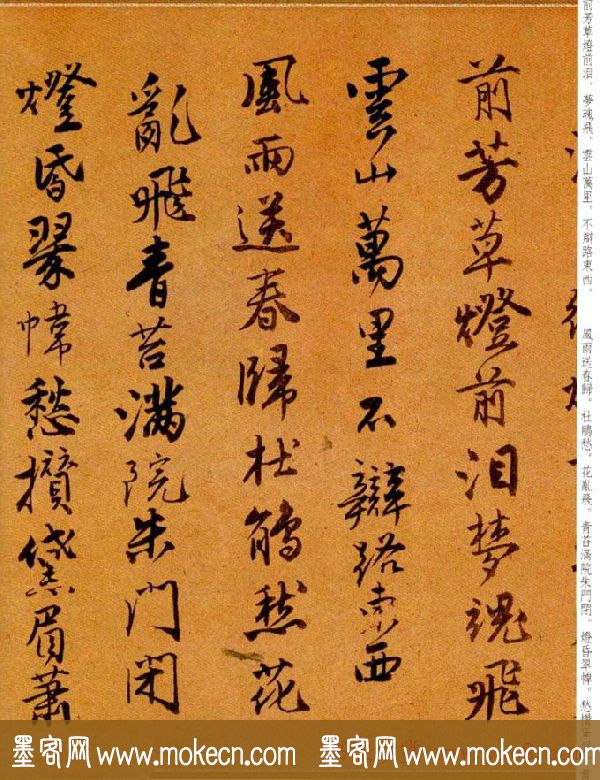 前芳草燈前泪夢魂飛
雲山萬里不辯路東西
風雨送春歸杜鵑愁花
亂飛青苔滿院朱門閉
燈昏翠幃愁攢黛眉蕭
前芳草燈前泪。夢魂飛。雲山萬里。不辯路東西。
風雨送春歸。杜鵑愁。花亂飛。青苔滿院朱門閉。燈昏翠幃。愁攢
墨客网 www.mokecn.com 墨客网 www.mokecn.com